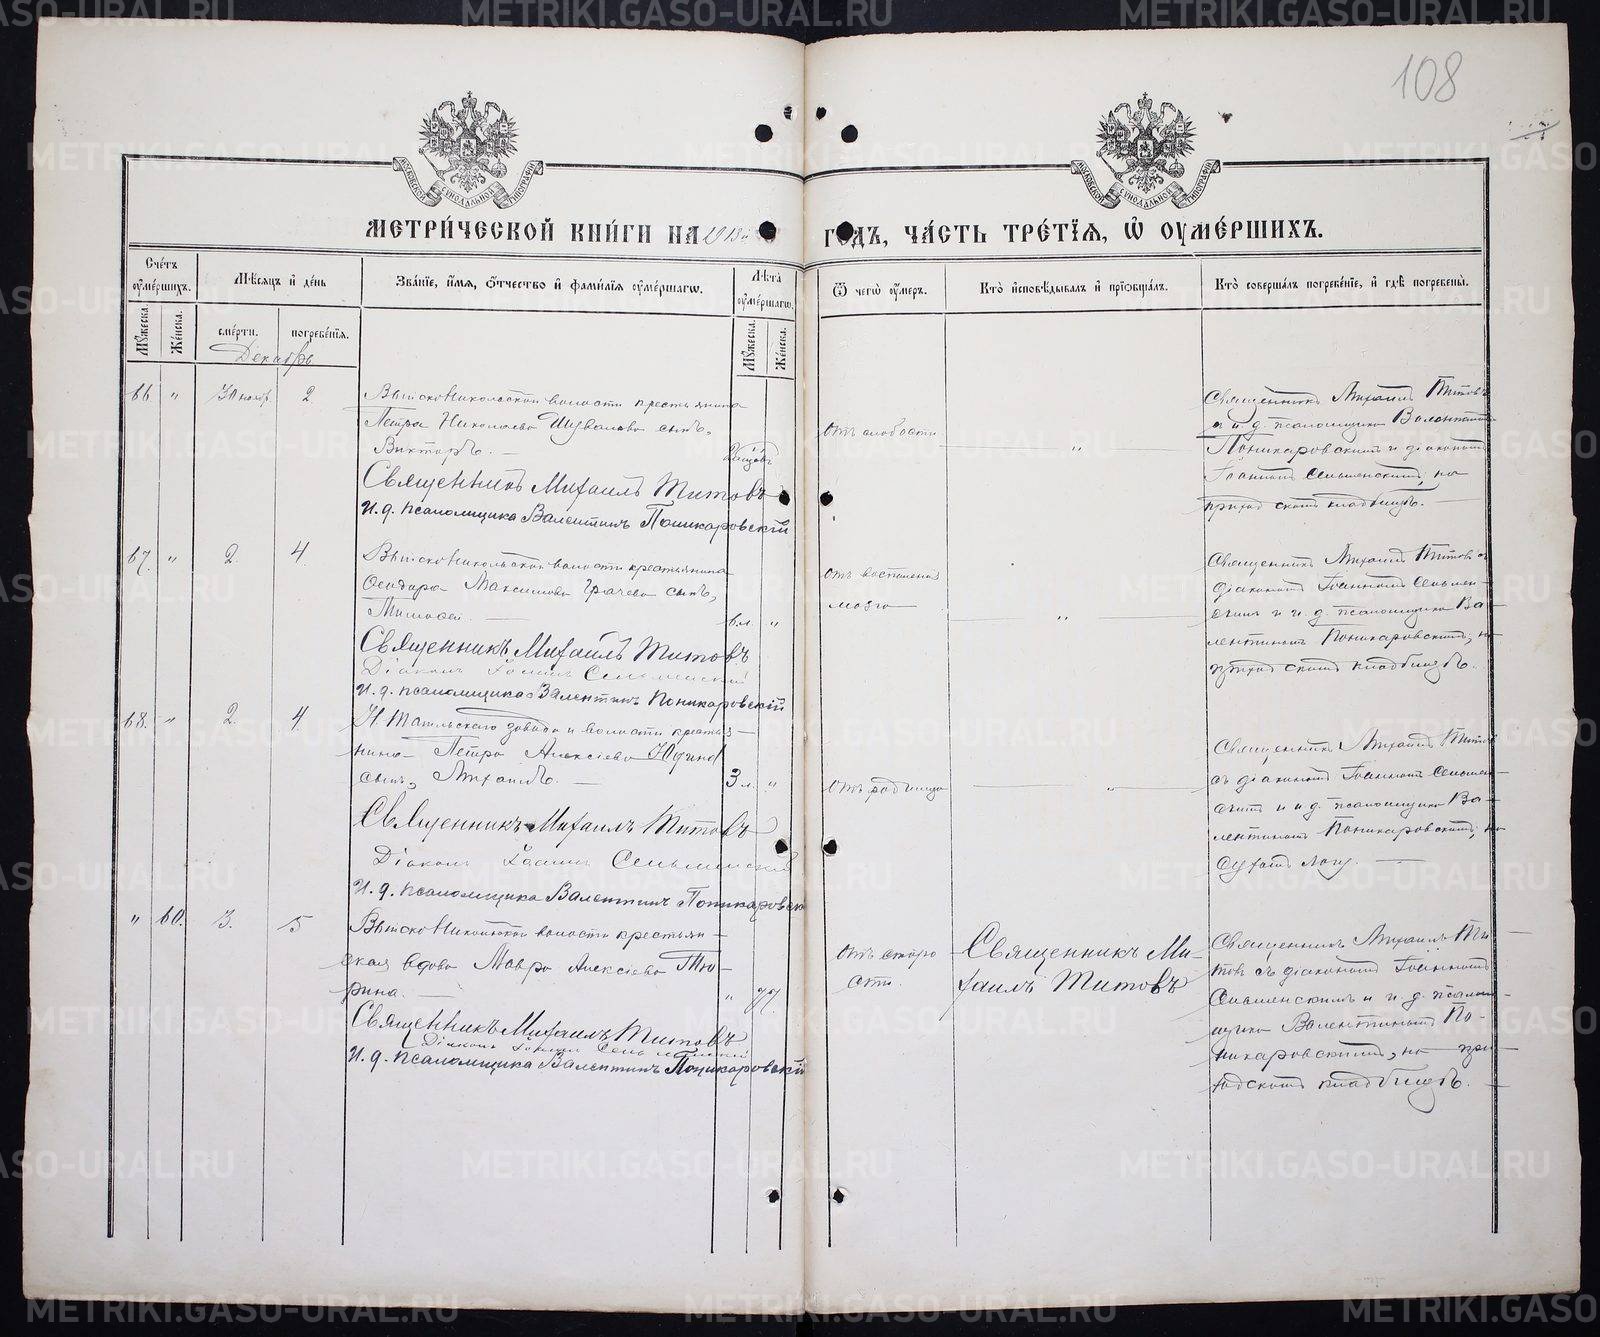 108
МОСКОВСКОЙ СѴНОДАЛЬНОЙ ТИПОГРАФІИ
МОСКОВСКОЙ СѴНОДАЛЬНОЙ ТИПОГРАФІИ
МЕТРИ́ЧЕСКОЙ КНИ́ГИ НА 1913й ГОДЪ, ЧА́СТЬ ТРЕ́ТІѦ, Ѡ҆ ОУМЕ́РШИХЪ.
Сче́тъ оумершихъ.
Мѣсѧцъ и҆ де́нь
Зва́нїе, и҆́мѧ, ѻ҆́тчество и҆ фами́лїѧ оуме́ршагѡ.
Лѣта̀ оуме́ршагѡ.
Ѿ чегѡ̀ оу́меръ.
Кто̀ и҆сповѣ́дывалъ и҆ прїѡбща́лъ.
Кто̀ соверша́лъ погребе́нїе, и҆ гдѣ̀ погребены̀.
Мꙋжеска.
Же́нска.
сме́рти.
погребе́нїѧ.
Мꙋжеска.
Же́нска.
Декабрь
66 " 30 нояб. 2
Выйско Никольской волости крестьянина
Петра Николаева Шувалова сынъ,
Викторъ. —
Священникъ Михаилъ Титовъ
И. д. псаломщика Валентинъ Поникаровскій
Отъ слабости
"
Священникъ Михаилъ Титовъ
и и. д. псаломщика Валентинъ
Поникаровскимъ и діакономъ
Іоанномъ Сельменскимъ, на
приходскомъ кладбищѣ. —
67. " 2. 4.
Выйско Никольской волости крестьянина
Ѳеодора Максимова Грачева сынъ,
—
6 л. "
Священникъ Михаилъ Титовъ
Діаконъ Іоаннъ Сельменскій
И. д. псаломщика Валентинъ Поникаровскій
Отъ воспаленія
мозга
"
Священникъ Михаилъ Титовъ съ
діакономъ Іоанномъ Сельмен-
скимъ и и. д. псаломщика Ва-
лентиномъ Поникаровскимъ, на
приходскомъ кладбищѣ.
68. " 2. 4.
Н. Тагильскаго завода и волости крестья-
нина Петра Алексіева Юдина
сынъ, Михаилъ. —
3 л. "
Священникъ Михаилъ Титовъ
Діаконъ Іоаннъ Сельменскій
И. д. псаломщика Валентинъ Поникаровскій
Отъ родимца
"
Священникъ Михаилъ Титовъ
съ діакономъ Іоанномъ Сельмен-
скимъ и и. д. псаломщика Ва-
лентиномъ Поникаровскимъ, на
Сухомъ логу. —
" 60. 3. 5
Выйско Никольской волости крестьян-
ская вдова Мавра Алексіева Тю-
рина. —
" 77.
Священникъ Михаилъ Титовъ
Діаконъ Іоаннъ Сельменскій
И. д. псаломщика Валентинъ Поникаровскій
Отъ старо
сти.
Священникъ Ми-
хаилъ Титовъ
Священникъ Михаилъ Ти-
товъ съ діакономъ Іоанномъ
Сельменскимъ и и. д. псалом-
щика Валентиномъ По-
никаровскимъ, на при-
ходскомъ кладбищѣ.
METRIKI.GASO-URAL.RU